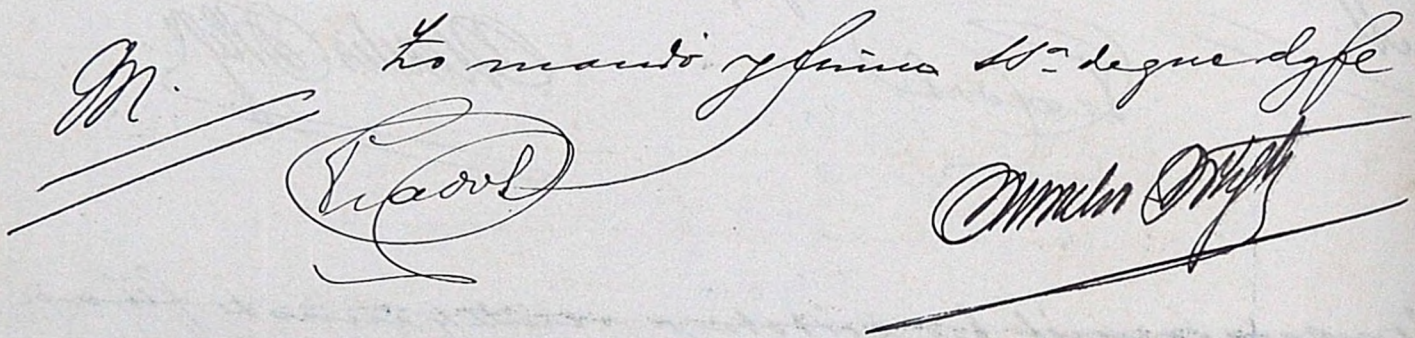 Lo mandó y firma S Sª de que doy fe
M.